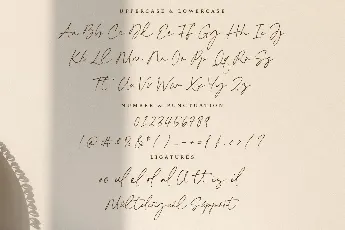 UPPERCASE & LOWERCASE
Aa Bb Cc Dd Ee Ff Gg Hh Ii Jj
Kk Ll Mm Nn Oo Pp Qq Rr Ss
Tt Uu Vv Ww Xx Yy Zz
NUMBER & PUNCTUATION
0123456789
! @ # & % $ * ( ) - + = { } , . < > / ?
LIGATURES
oo ul el ol al ll tt is il
Multilingual Support